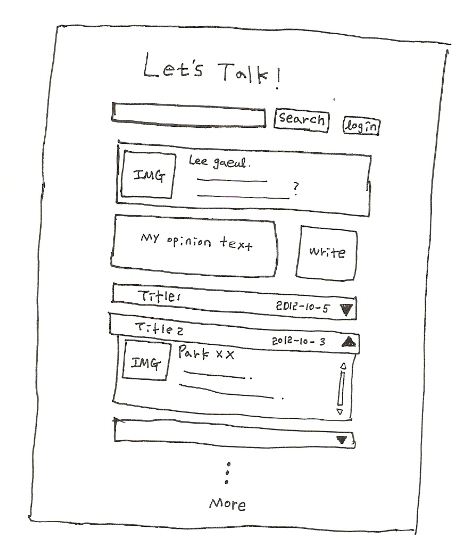 Let's Talk!
Search
login
IMG
Lee gaeul.
?
My opinion text
write
Title1
2012-10-5
Title2
2012-10-3
IMG
Park XX
More